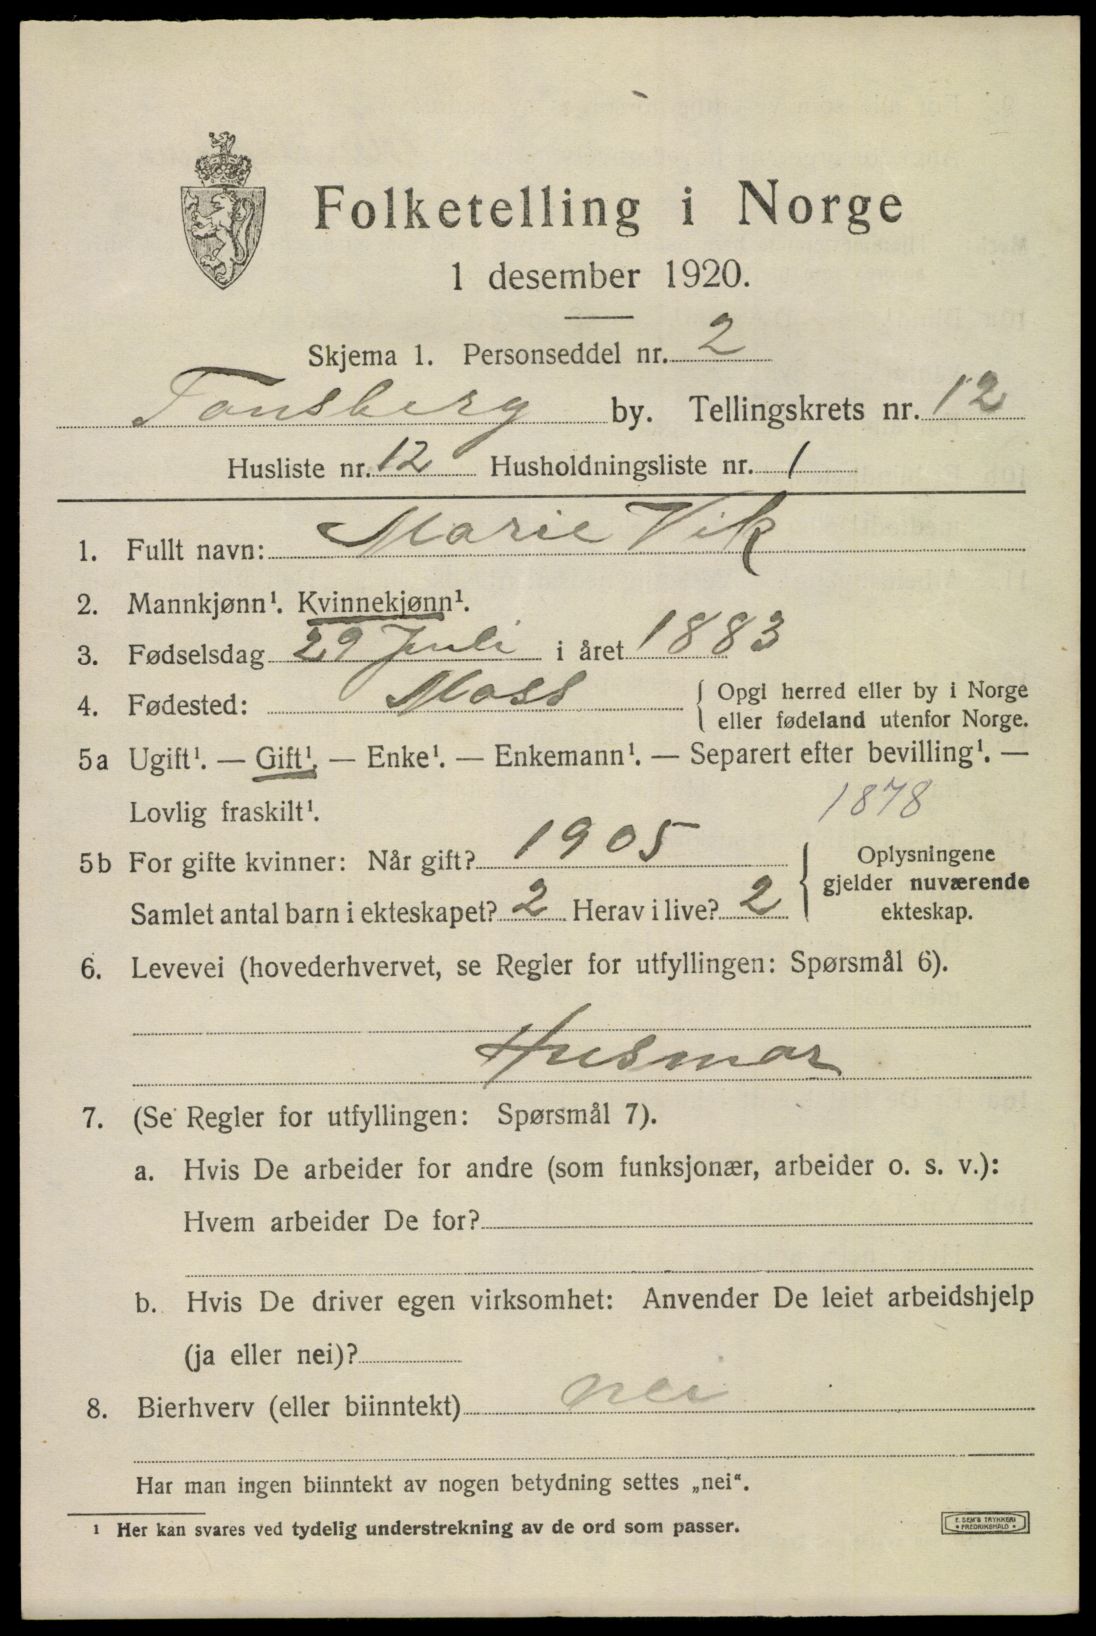 Folketelling i Norge
1 desember 1920.
Skjema 1. Personseddel nr. 2
Tønsberg by. Tellingskrets nr. 12
Husliste nr. 12 Husholdningsliste nr. 1
1. Fullt navn: Marie Vik
2. Mannkjønn¹. Kvinnekjønn¹.
3. Fødselsdag 29 Juli i året 1883
4. Fødested: Moss { Opgi herred eller by i Norge
eller fødeland utenfor Norge.
5a Ugift¹. — Gift¹. — Enke¹. — Enkemann¹. — Separert efter bevilling¹. —
Lovlig fraskilt¹. 1878
5b For gifte kvinner: Når gift? 1905
Samlet antal barn i ekteskapet? 2 Herav i live? 2
{ Oplysningene
gjelder nuværende
ekteskap.
6. Levevei (hovederhvervet, se Regler for utfyllingen: Spørsmål 6).
Husmor
7. (Se Regler for utfyllingen: Spørsmål 7).
a. Hvis De arbeider for andre (som funksjonær, arbeider o. s. v.):
Hvem arbeider De for?
b. Hvis De driver egen virksomhet: Anvender De leiet arbeidshjelp
(ja eller nei)?
8. Bierhverv (eller biinntekt) nei
Har man ingen biinntekt av nogen betydning settes „nei“.
¹ Her kan svares ved tydelig understrekning av de ord som passer.
E. SEM'S TRYKKERI
• FREDRIKSHALD •